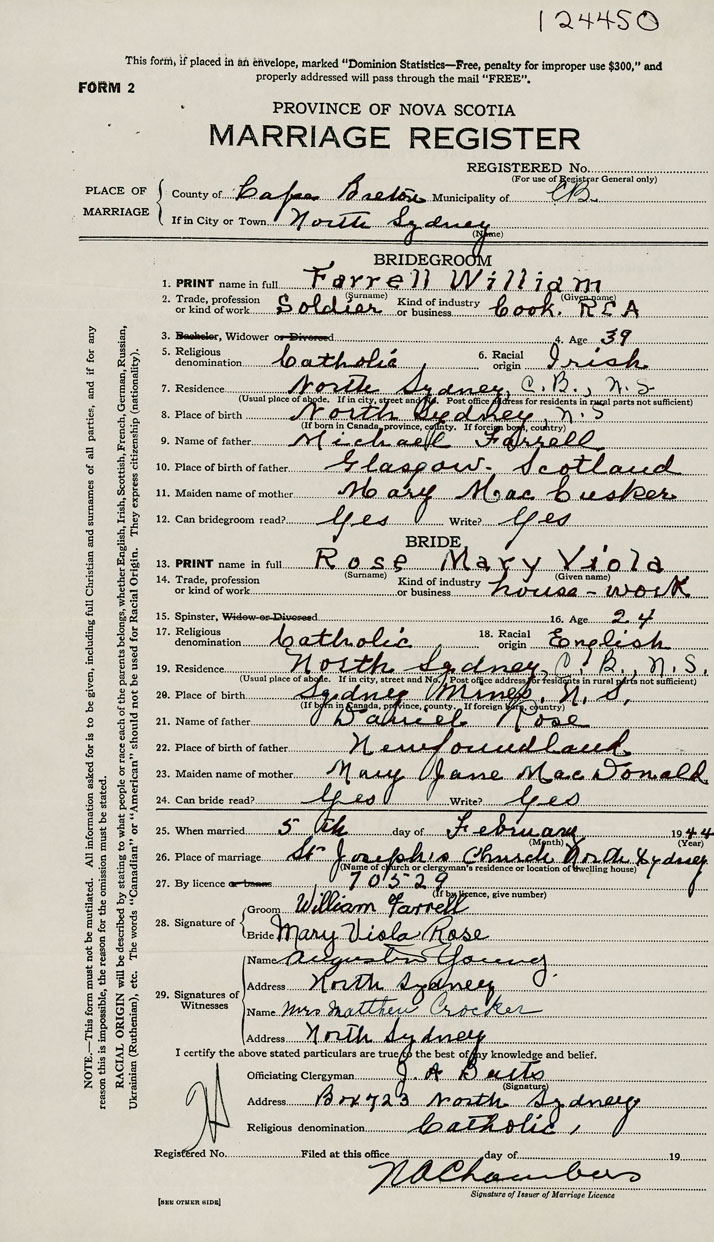 124450
This form, if placed in an envelope, marked "Dominion Statistics—Free, penalty for improper use $300," and
properly addressed will pass through the mail "FREE".
FORM 2
PROVINCE OF NOVA SCOTIA
MARRIAGE REGISTER
REGISTERED No.
(For use of Registrar General only)
PLACE OF MARRIAGE
County of Cape Breton Municipality of CB.
If in City or Town North Sydney
(Name)
BRIDEGROOM
1. PRINT name in full Farrell William
(Surname) (Given name)
2. Trade, profession or kind of work Soldier Kind of industry or business Cook. RCA
3. Bachelor, Widower or Divorced 4. Age 39
5. Religious denomination Catholic 6. Racial origin Irish
7. Residence North Sydney, C.B., N.S
(Usual place of abode. If in city, street and No. Post office address for residents in rural parts not sufficient)
8. Place of birth North Sydney, N.S
(If born in Canada, province, county. If foreign born, country)
9. Name of father Michael Farrell
10. Place of birth of father Glasgow- Scotland
11. Maiden name of mother Mary MacCusker
12. Can bridegroom read? Yes Write? Yes
BRIDE
13. PRINT name in full Rose Mary Viola
(Surname) (Given name)
14. Trade, profession or kind of work Kind of industry or business house-work
15. Spinster, Widow or Divorced 16. Age 24
17. Religious denomination Catholic 18. Racial origin English
19. Residence North Sydney, C.B., N.S.
(Usual place of abode. If in city, street and No. Post office address for residents in rural parts not sufficient)
20. Place of birth Sydney Mines, N.S,
(If born in Canada, province, county. If foreign born, country)
21. Name of father Daniel Rose
22. Place of birth of father Newfoundland
23. Maiden name of mother Mary Jane MacDonald
24. Can bride read? Yes Write? Yes
25. When married 5th day of February 1944
(Month) (Year)
26. Place of marriage St Joseph's Church North Sydney
(Name of church or clergyman's residence or location of dwelling house)
27. By licence or banns 70529
(If by licence, give number)
28. Signature of
Groom William Farrell
Bride Mary Viola Rose
29. Signatures of Witnesses
Name Young
Address North Sydney
Name Mrs Matthew Crocker
Address North Sydney
I certify the above stated particulars are true to the best of my knowledge and belief.
Officiating Clergyman J. A Butts
(Signature)
Address Box 723 North Sydney
Religious denomination Catholic,
Registered No. Filed at this office day of 19
NAChambers
Signature of Issuer of Marriage Licence
[SEE OTHER SIDE]
NOTE.—This form must not be mutilated. All information asked for is to be given, including full Christian and surnames of all parties, and if for any
reason this is impossible, the reason for the omission must be stated.
RACIAL ORIGIN will be described by stating to what people or race each of the parents belongs, whether English, Irish, Scottish, French, German, Russian,
Ukrainian (Ruthenian), etc. The words "Canadian" or "American" should not be used for Racial Origin. They express citizenship (nationality).